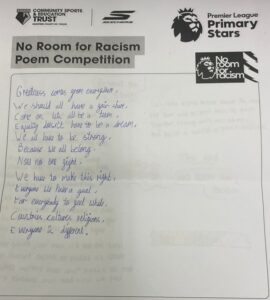 COMMUNITY SPORTS
& EDUCATION
TRUST
SKECHERS
Premier League
Primary
Stars
No Room for Racism
Poem Competition
No
Room
for
Racism
Greatness comes from everywhere.
We should all have a fair share.
Come on lets all be a team.
Equality doesn't have to be a dream.
We all have to be strong.
Because we all belong.
No one fight.
We have to make this right.
Everyone has a goal.
For everybody to feel whole.
Countries cultures religions.
Everyone is different.